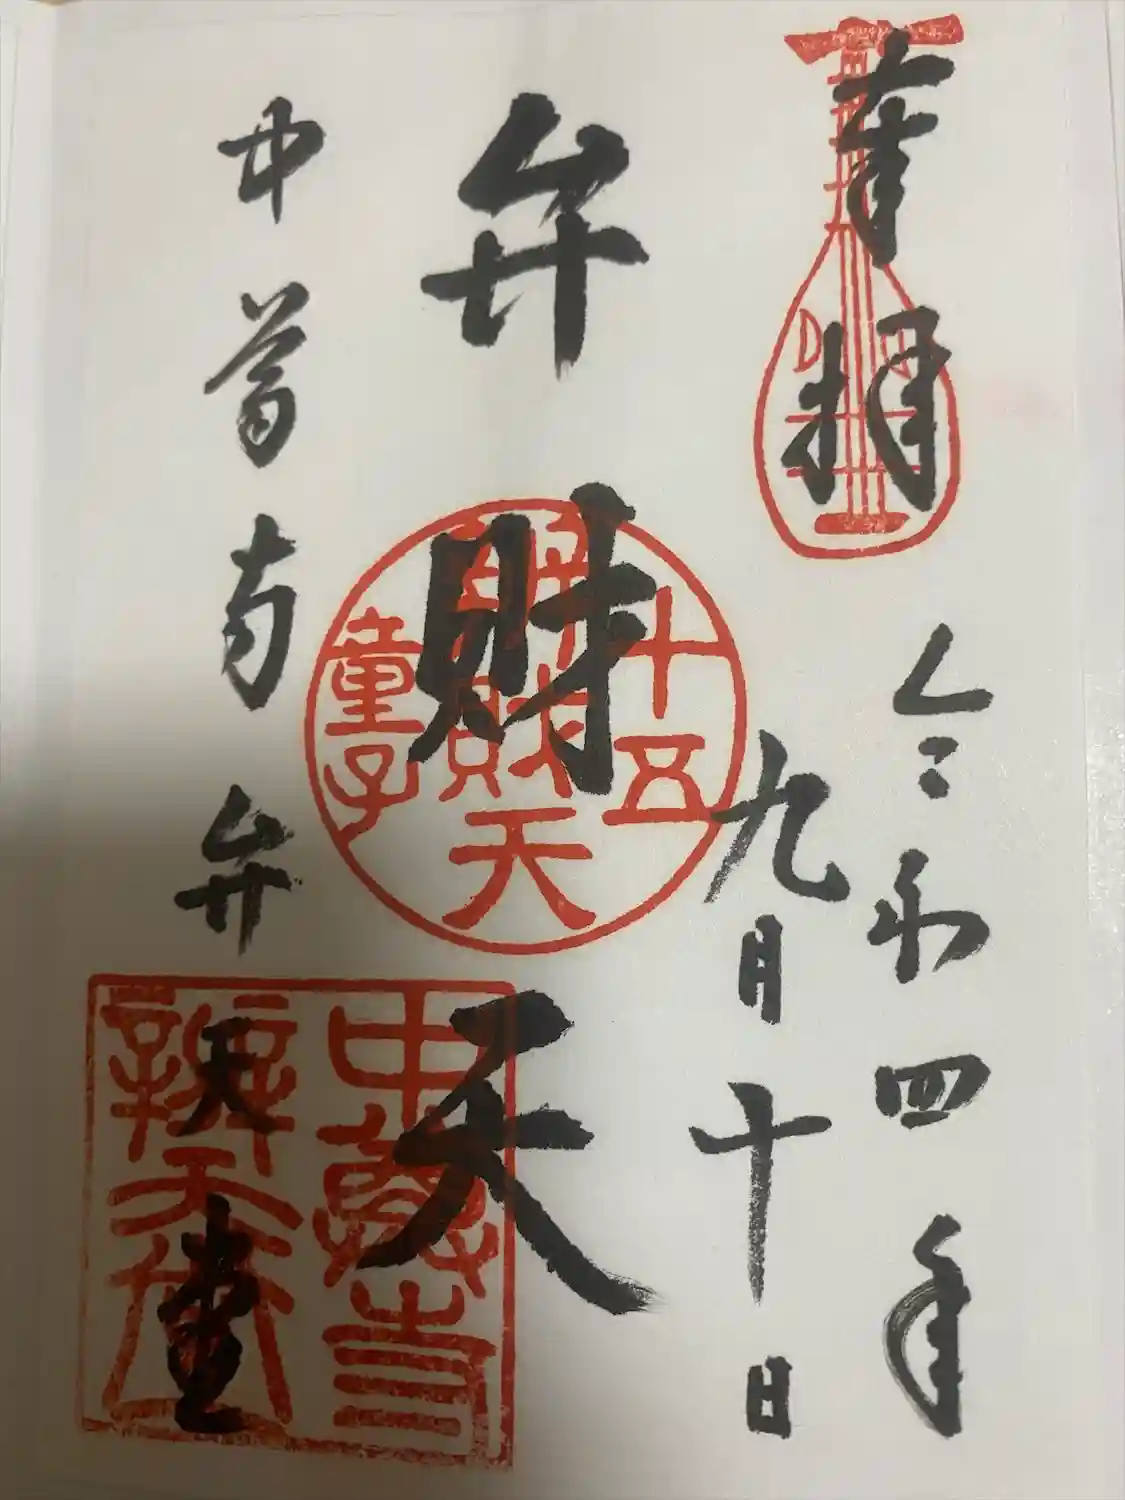 奉拝
令和四年
九月十日
弁財天
中尊寺弁天堂
十五
辨財天
童子
中尊寺
辨天堂